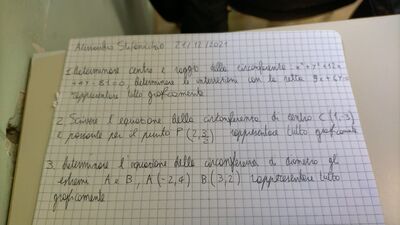 Alessandro 21/12/2021
1. Determinare centro e raggio della circonferenza x²+y²+12x
determinare le intersezioni con la retta
rappresentare tutto graficamente
2. Scrivere l'equazione della circonferenza di centro C (1,-3)
e passante per il punto P rappresentare tutto graficamente
3. determinare l'equazione della circonferenza di diametro gli
estremi A e B, A(-2,4) B(3,2) rappresentare tutto
graficamente